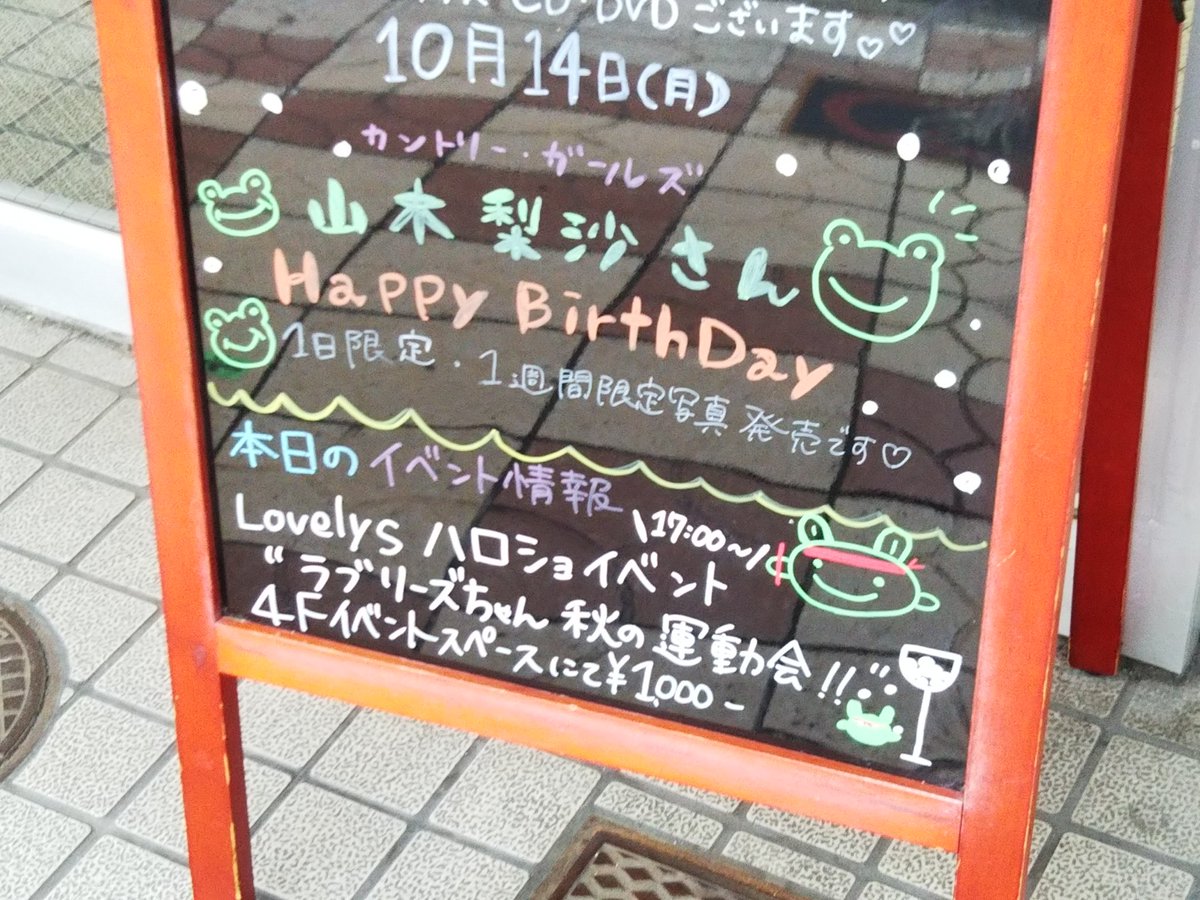 CD・DVDございます♡♡
10月14日(月)
カントリー・ガールズ
山木梨沙さん
Happy BirthDay
1日限定・1週間限定写真発売です♡
本日のイベント情報
\17:00~/
Lovelys ハロショイベント
“ラブリーズちゃん 秋の運動会!!”
4Fイベントスペースにて¥1,000-